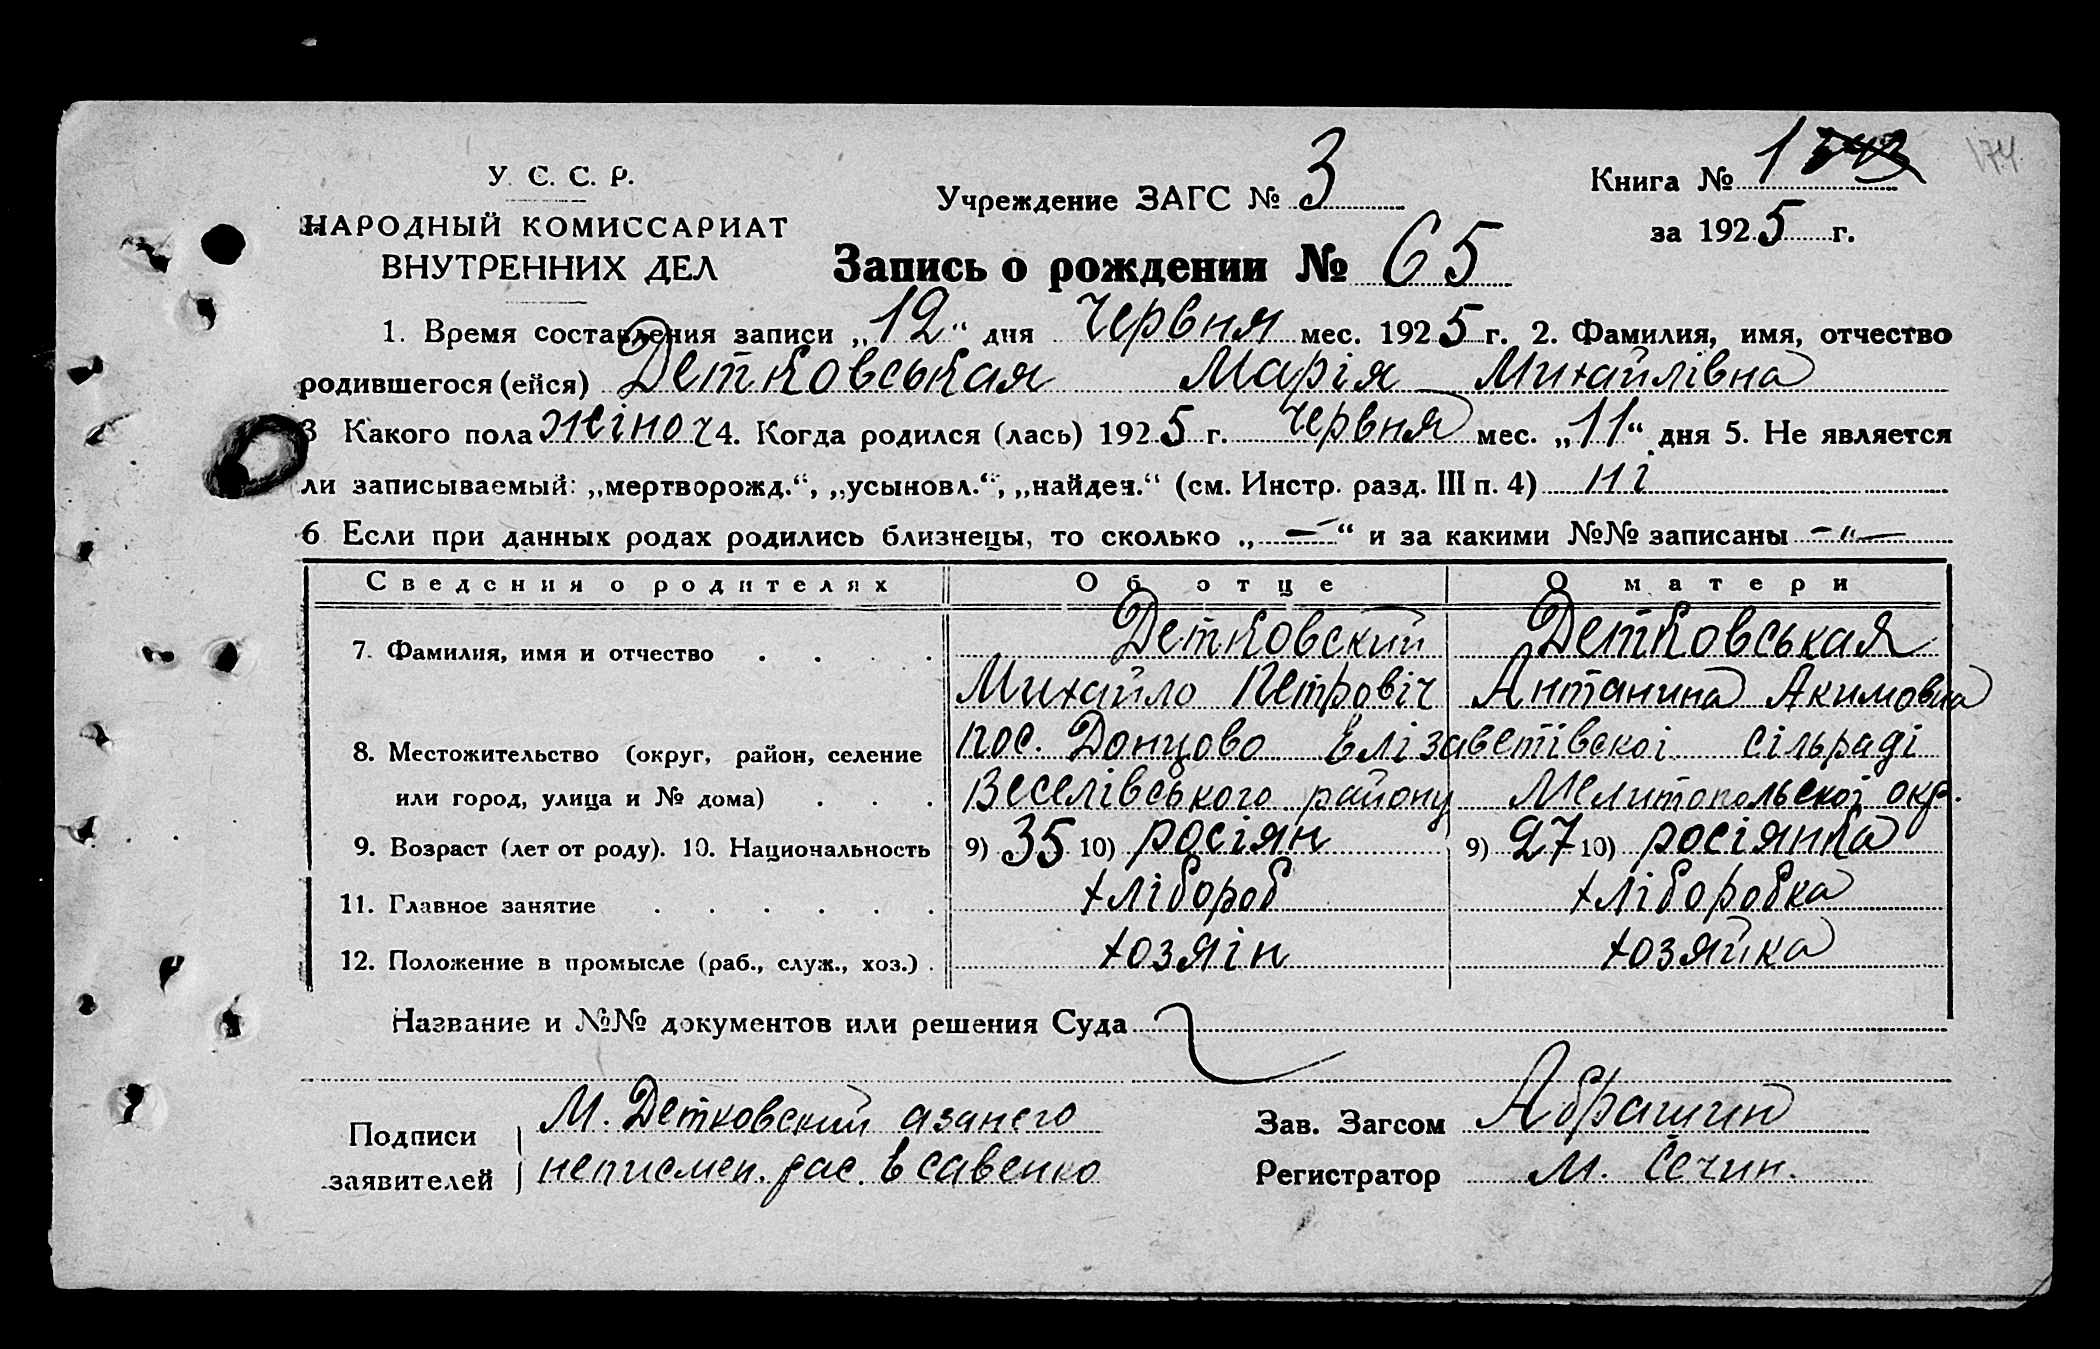 174
У. С. С. Р.
НАРОДНЫЙ КОМИССАРИАТ
ВНУТРЕННИХ ДЕЛ
Учреждение ЗАГС № 3
Книга № 1
за 1925 г.
Запись о рождении № 65
1. Время составления записи „12“ дня Червня мес. 1925 г. 2. Фамилия, имя, отчество
родившегося (ейся) Детковськая Марія Михайлівна
3 Какого пола жіноч 4. Когда родился (лась) 1925 г. Червня мес. „11“ дня 5. Не является
ли записываемый: „мертворожд.“, „усыновл.“, „найден.“ (см. Инстр. разд. III п. 4) ні
6 Если при данных родах родились близнецы, то сколько „—“ и за какими №№ записаны -"-
Сведения о родителях Об отце О матери
7. Фамилия, имя и отчество . . . . Детковский Детковськая
Михайло Петровіч Антанина Акимовна
8. Местожительство (округ, район, селение пос. Донцово Елізаветівскоі сільраді
или город, улица и № дома) . . . Веселівського району Мелитопольскоі окр.
9. Возраст (лет от роду). 10. Национальность 9) 35 10) росіян 9) 27 10) росіянка
11. Главное занятие . . . . . . хлібороб хліборобка
12. Положение в промысле (раб., служ., хоз.) . хозяін хозяйка
Название и №№ документов или решения Суда
Подписи
заявителей
М. Детковский азанего
неписмен. рас. в савенко
Зав. Загсом Абрашин
Регистратор М. Сечин.